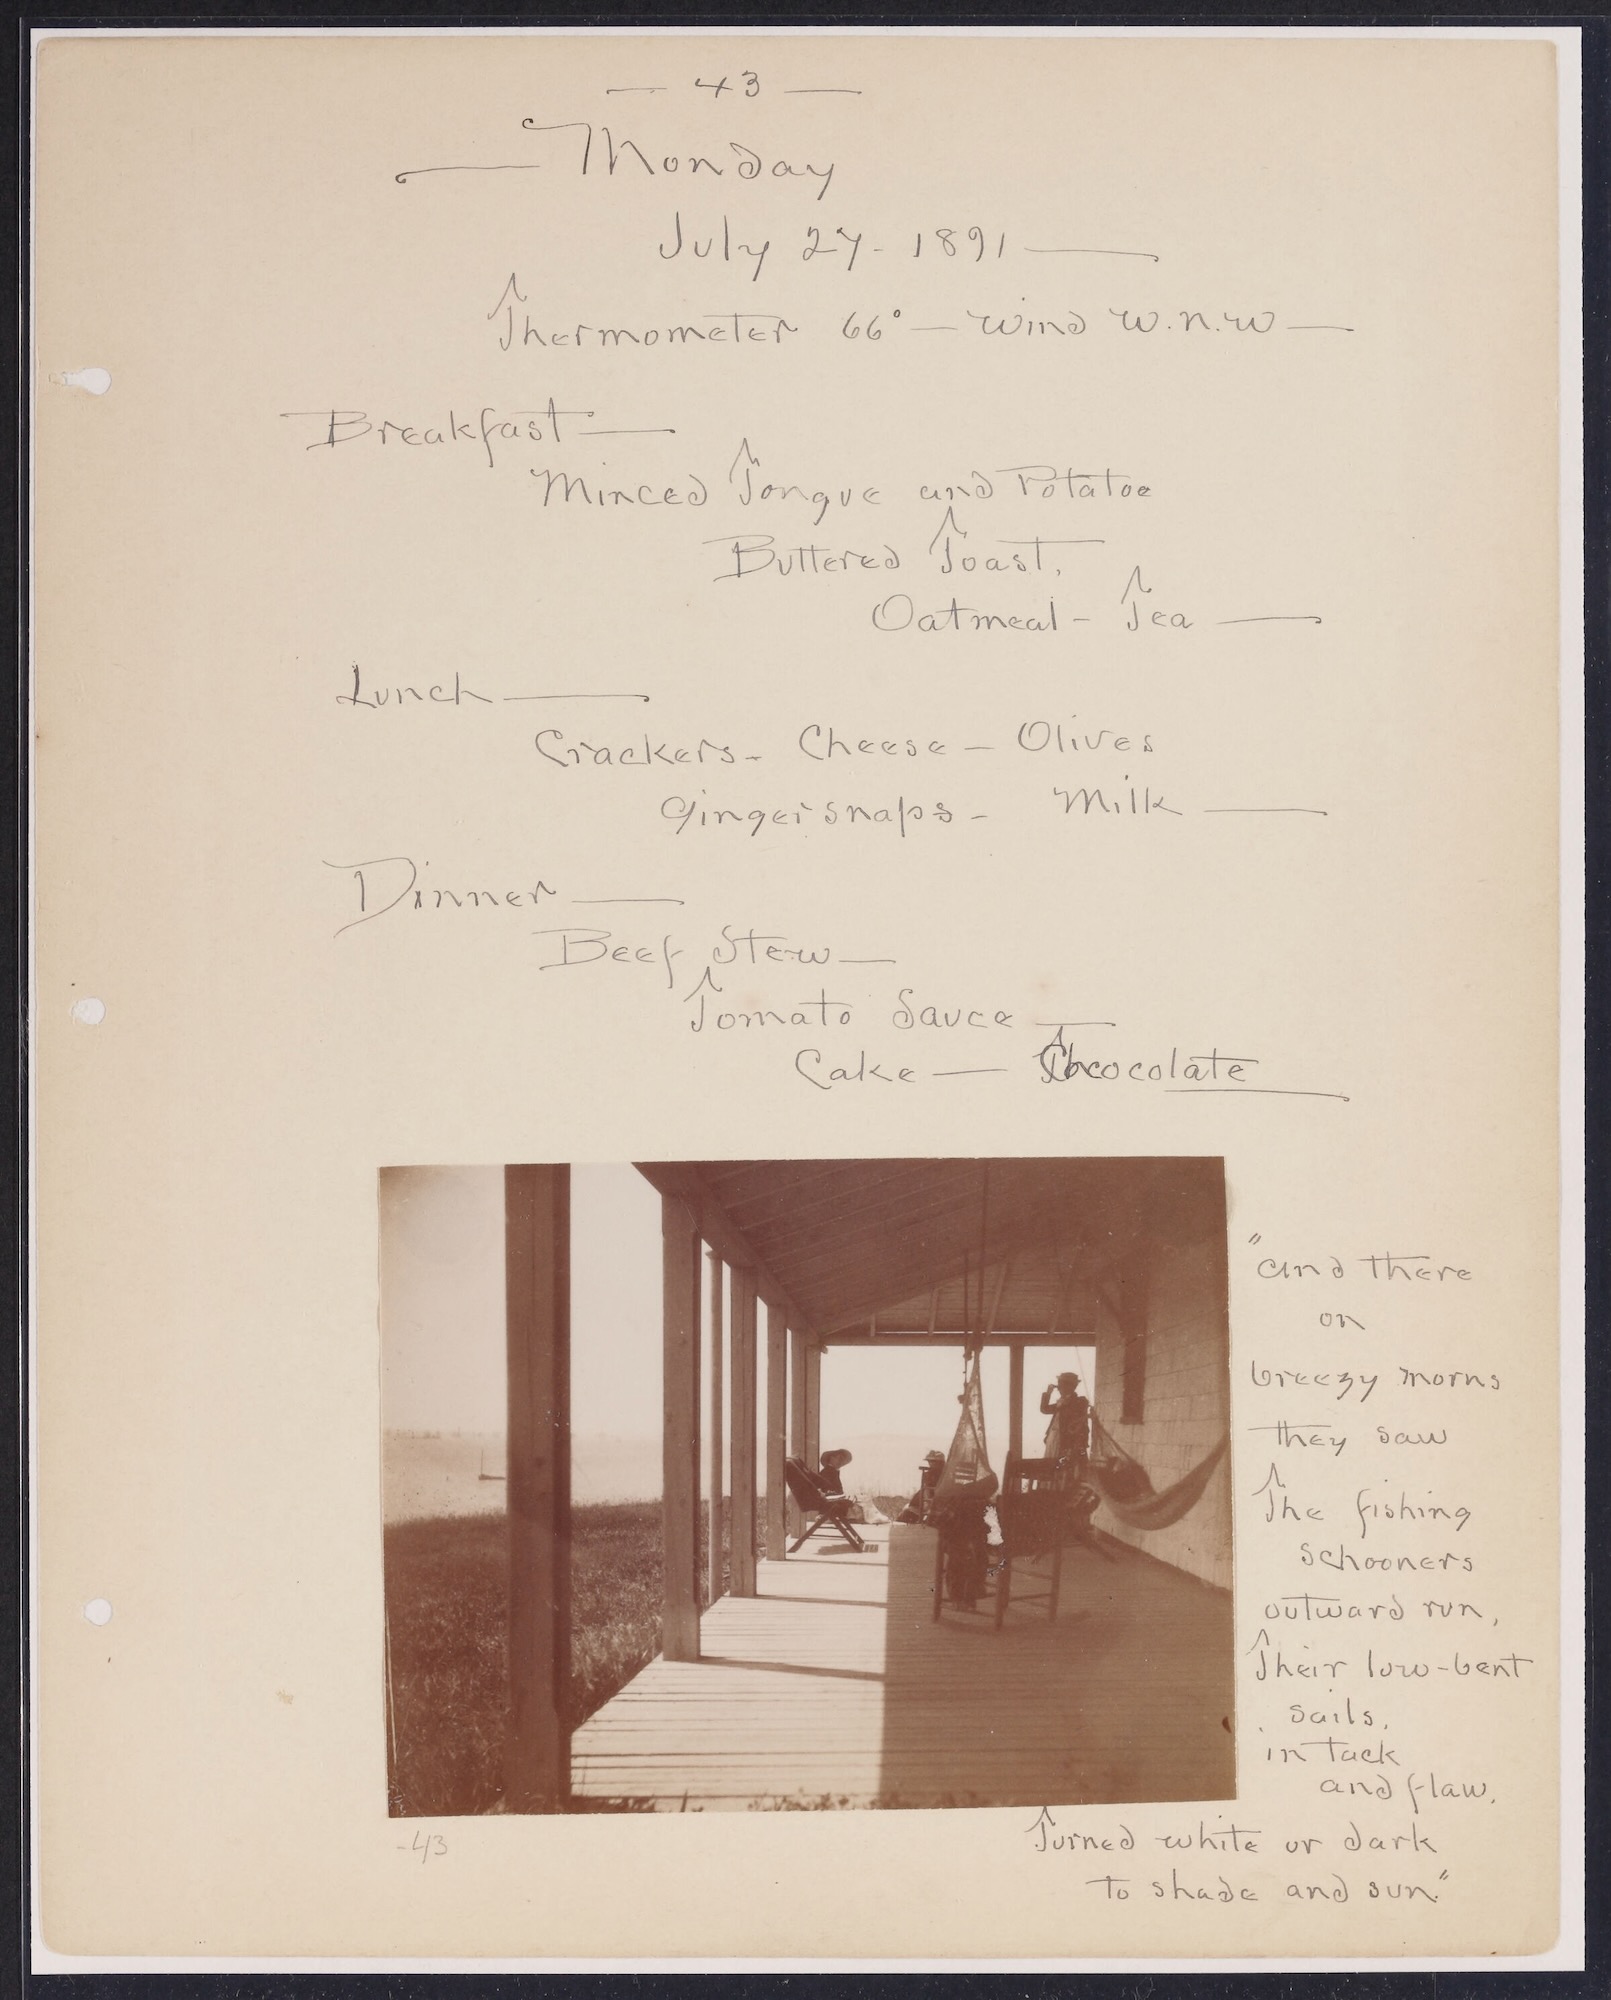 — 43 —
— Monday
July 27 - 1891 —
Thermometer 66° — Wind W.N.W —
Breakfast —
Minced Tongue and Potatoe
Buttered Toast.
Oatmeal - Tea —
Lunch —
Crackers - Cheese - Olives
Gingersnaps - Milk —
Dinner —
Beef Stew —
Tomato Sauce —
Cake — Chocolate
"and there
on
breezy morns
they saw
The fishing
schooners
outward run,
Their low-bent
sails,
in tack
and flaw,
Turned white or dark
to shade and sun."
-43